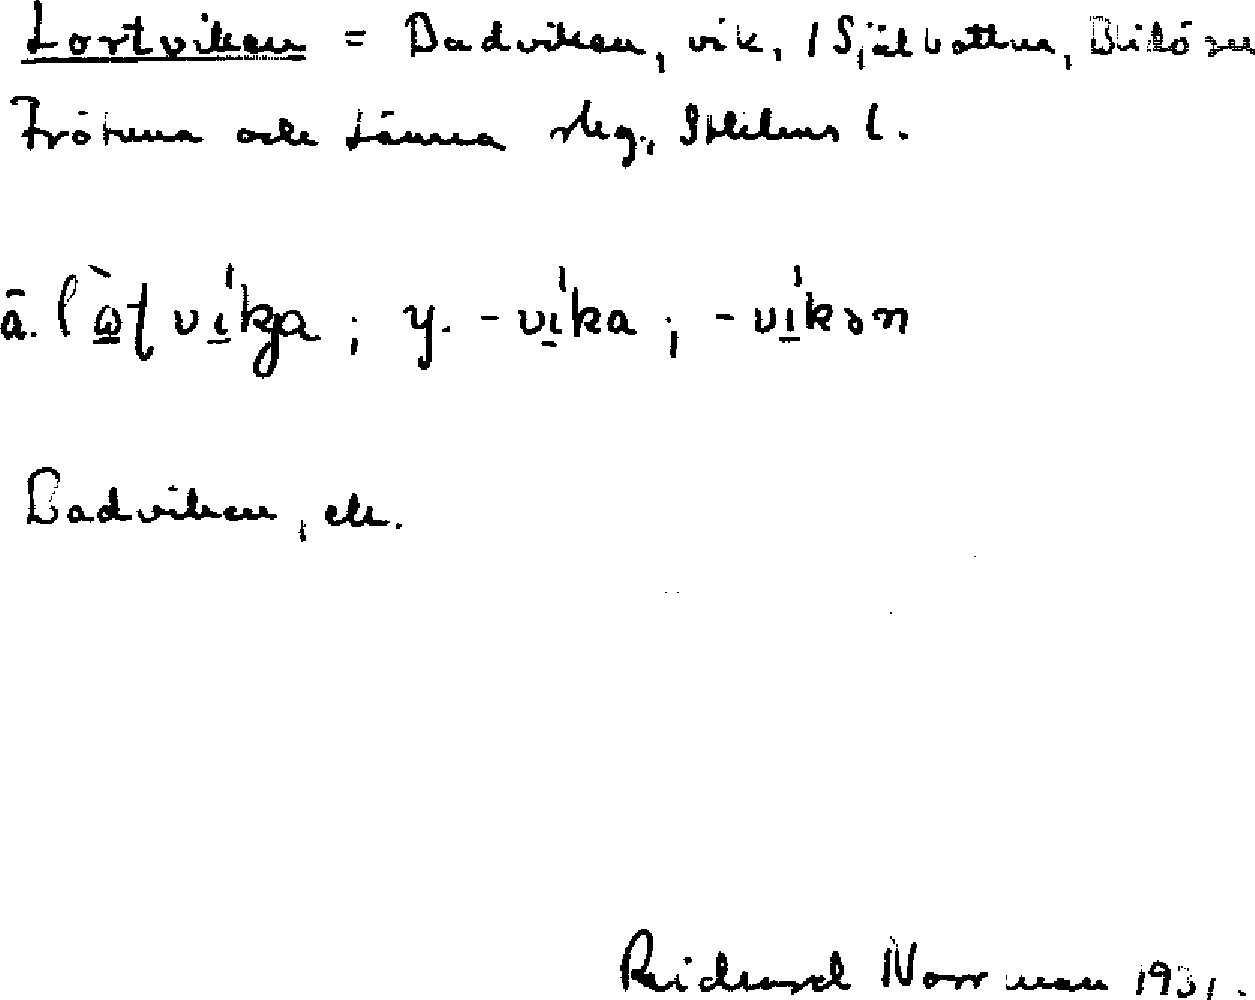 Lortviken = Badviken, vik, i Själbottna, Blidö sn
Frötuna och Länna skg., Sthlms l.
ā. l ò̱ʈ vi̱̍kja ; y. -vi̱̍ka ; -vi̱̍kən
Badviken, ek.
Richard Norrman 1931.